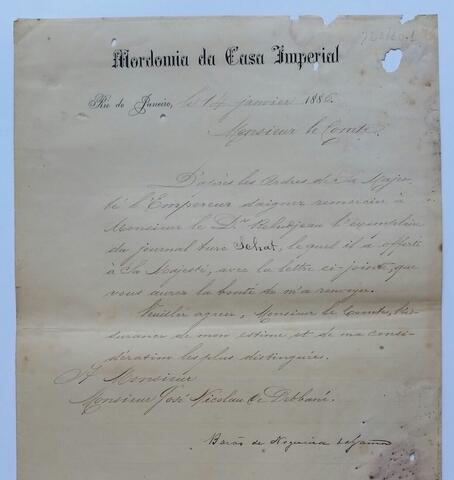 Mordomia da Casa Imperial
Rio de Janeiro, le 14 janvier 1886.
Monsieur le Comte,
D'après les Ordres de Sa Majes-
té l'Empereur daignez remercier à
Monsieur le Dr. l'exemplaire
du journal turc Sehat, lequel il a offerté
à Sa Majesté, avec la lettre ci-jointe, que
vous aurez la bonté de m'a renvoyer.
Veuillez agréer, Monsieur le Comte, l'as-
surance de mon estime et de ma consi-
dération les plus distinguées.
A Monsieur
Monsieur José Nicolau de Debbané.
Barão de Nogueira da Gama